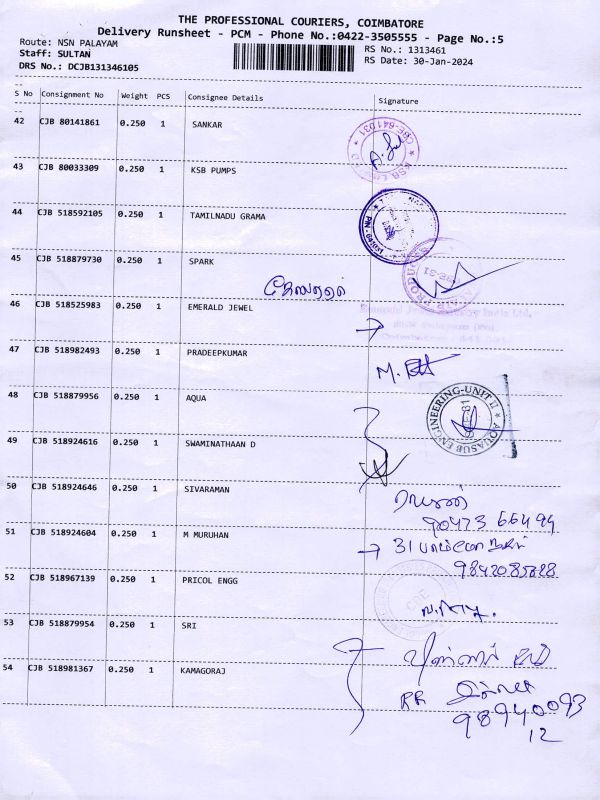 THE PROFESSIONAL COURIERS, COIMBATORE
Delivery Runsheet - PCM - Phone No.:0422-3505555 - Page No.:5
Route: NSN PALAYAM
RS No.: 1313461
Staff: SULTAN
RS Date: 30-Jan-2024
DRS No.: DCJB131346105
S No Consignment No Weight PCS Consignee Details Signature
42 CJB 80141861 0.250 1 SANKAR
43 CJB 80033309 0.250 1 KSB PUMPS
44 CJB 518592105 0.250 1 TAMILNADU GRAMA
45 CJB 518879730 0.250 1 SPARK
46 CJB 518525983 0.250 1 EMERALD JEWEL
47 CJB 518982493 0.250 1 PRADEEPKUMAR
48 CJB 518879956 0.250 1 AQUA
AQUASUB ENGINEERING-UNIT II
49 CJB 518924616 0.250 1 SWAMINATHAAN D
50 CJB 518924646 0.250 1 SIVARAMAN
90473 66494
51 CJB 518924604 0.250 1 M MURUHAN
31
9842085828
52 CJB 518967139 0.250 1 PRICOL ENGG
53 CJB 518879954 0.250 1 SRI
54 CJB 518981367 0.250 1 KAMAGORAJ
RR
98940093
12